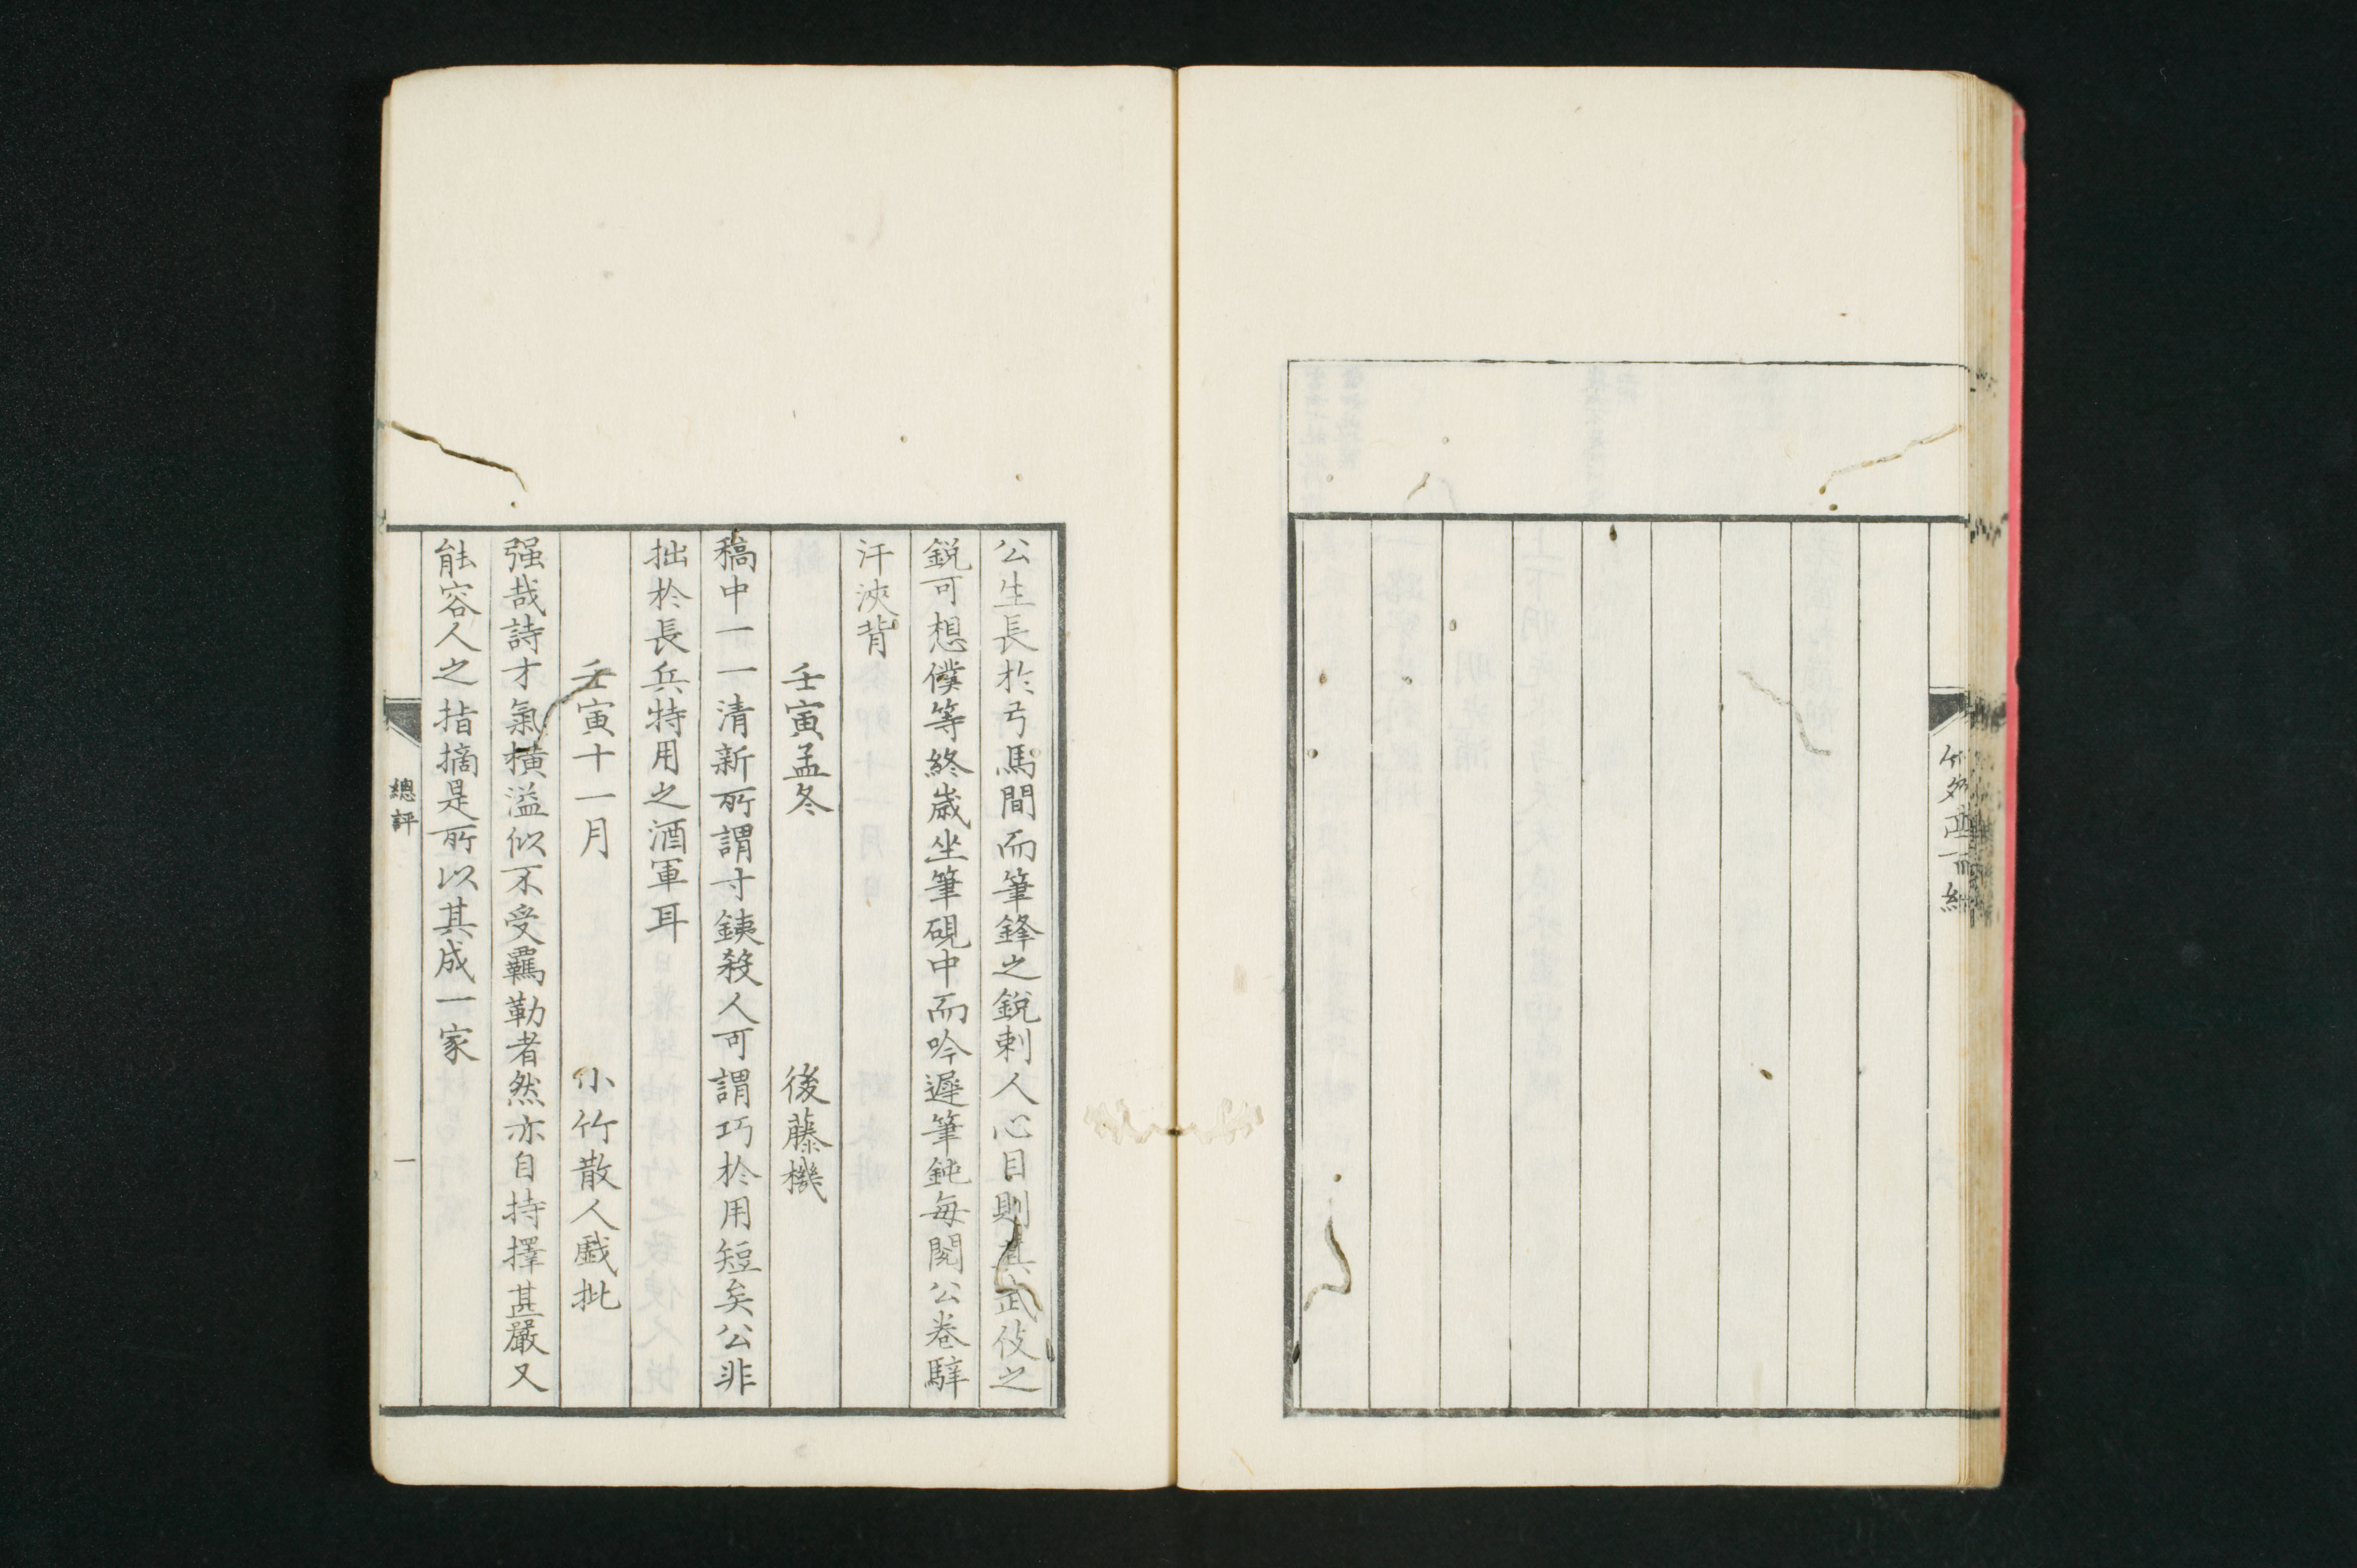 公生長於弓馬間而筆鋒之銳刺人心目則其武伎之
銳可想僕等終歲坐筆硯中而吟遲筆鈍每閱公卷騂
汗浹背
壬寅孟冬　後藤機
稿中一一清新所謂寸銕殺人可謂巧於用短矣公非
拙於長兵特用之酒軍耳
壬寅十一月　小竹散人戲批
强哉詩才氣橫溢似不受羈勒者然亦自持擇甚嚴又
能容人之指摘是所以其成一家
總評
一